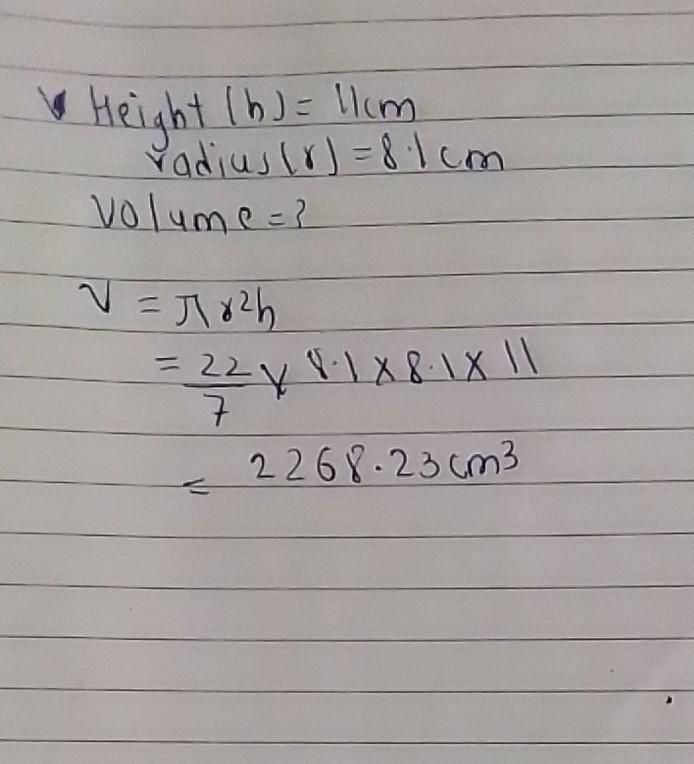 Height (h) = 11cm
radius (r) = 8.1 cm
Volume = ?
V = πr²h
= 22/7 × 8.1 × 8.1 × 11
= 2268.23 cm³